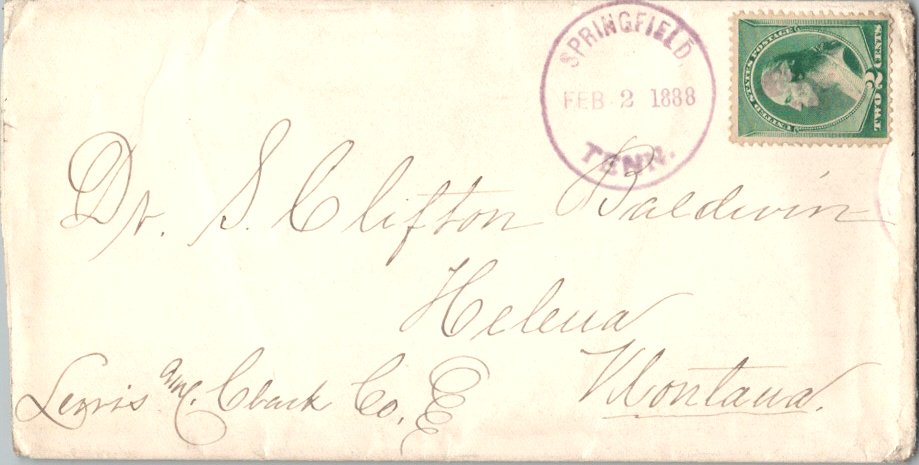 SPRINGFIELD,
FEB 2 1888
TENN.
UNITED STATES POSTAGE
TWO 2 CENTS
Dr. S. Clifton Baldwin
Helena
Montana.
Lewis & Clark Co,